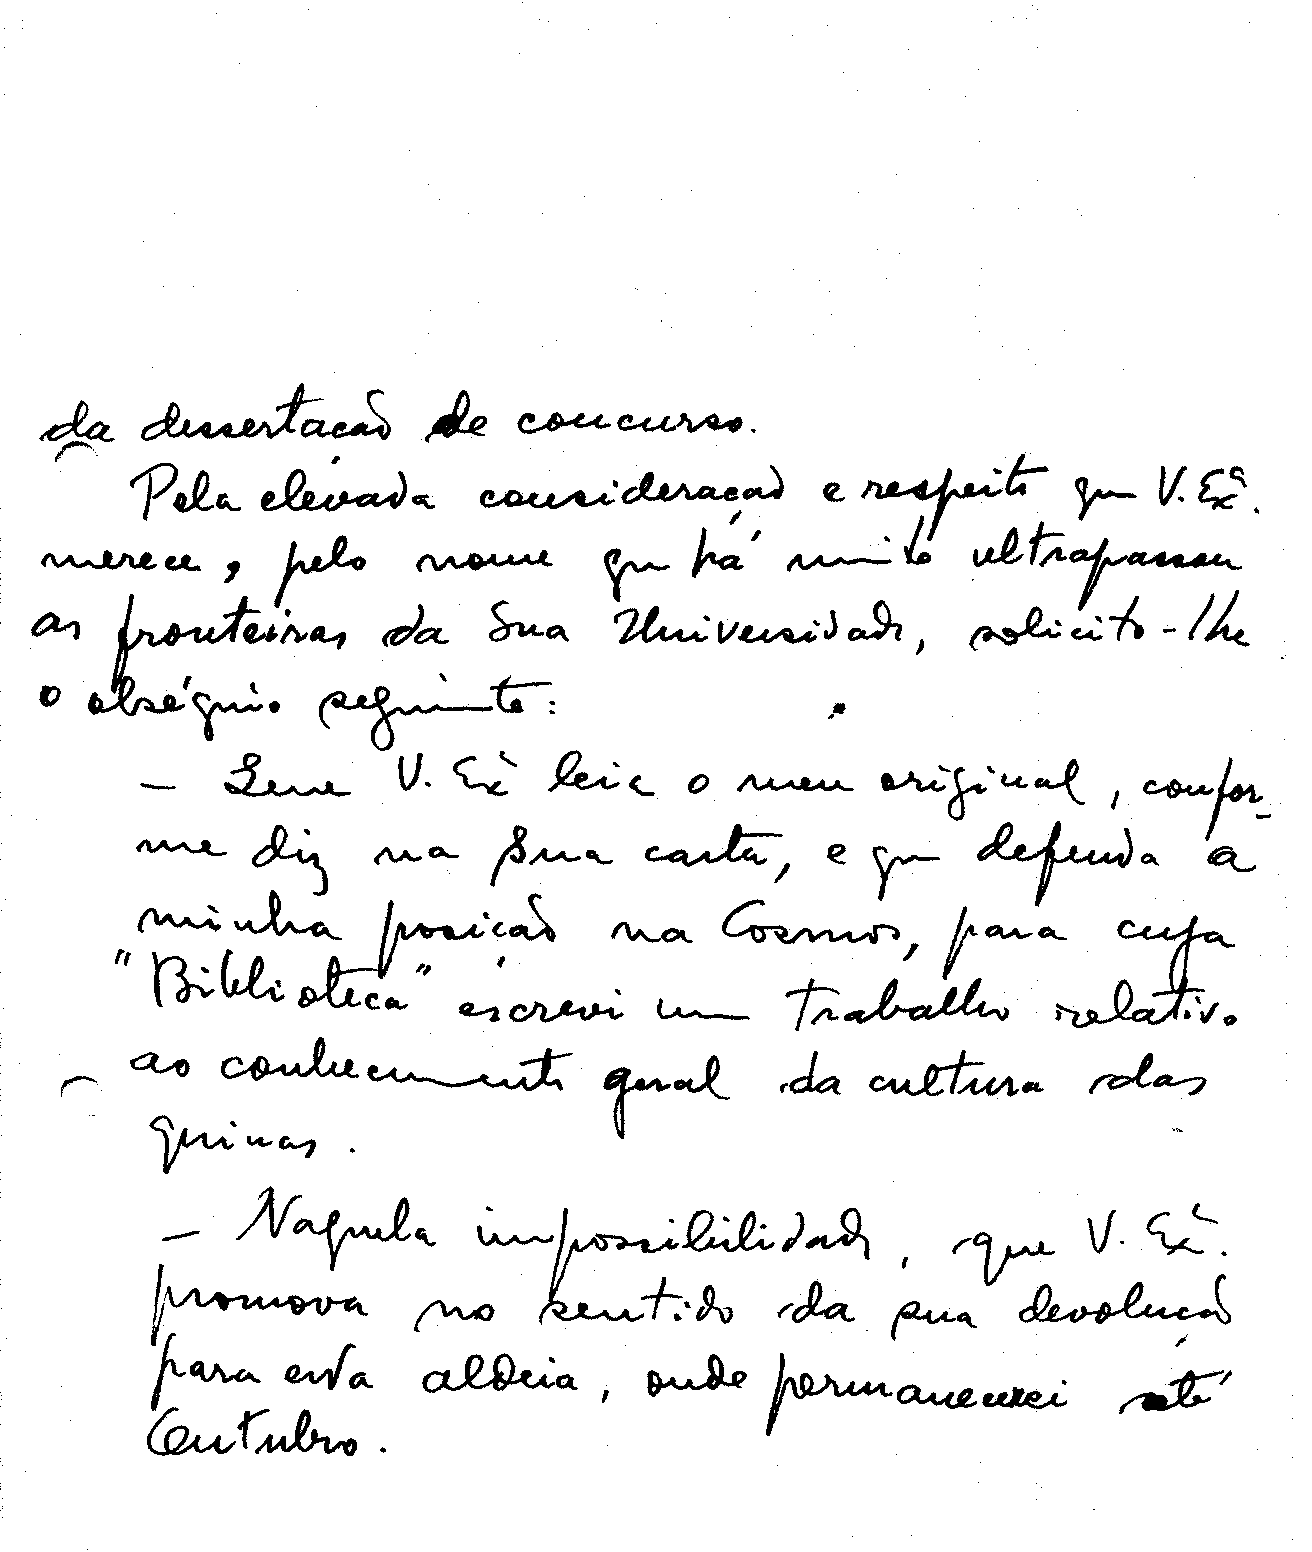 da dissertação de concurso.
Pela elevada consideração e respeito que V. Exª.
merece, pelo nome que há muito ultrapassou
as fronteiras da Sua Universidade, solicito-lhe
o obséquio seguinte:
— V. Exª leia o meu original, confor-
me diz na Sua carta, e que defenda a
minha posição na Cosmos, para cuja
"Biblioteca" escrevi um trabalho relativo
ao conhecimento geral da cultura das
quinas.
— Naquela impossibilidade, que V. Exª.
promova no sentido da sua devolução
para esta aldeia, onde permanecerei até
Outubro.